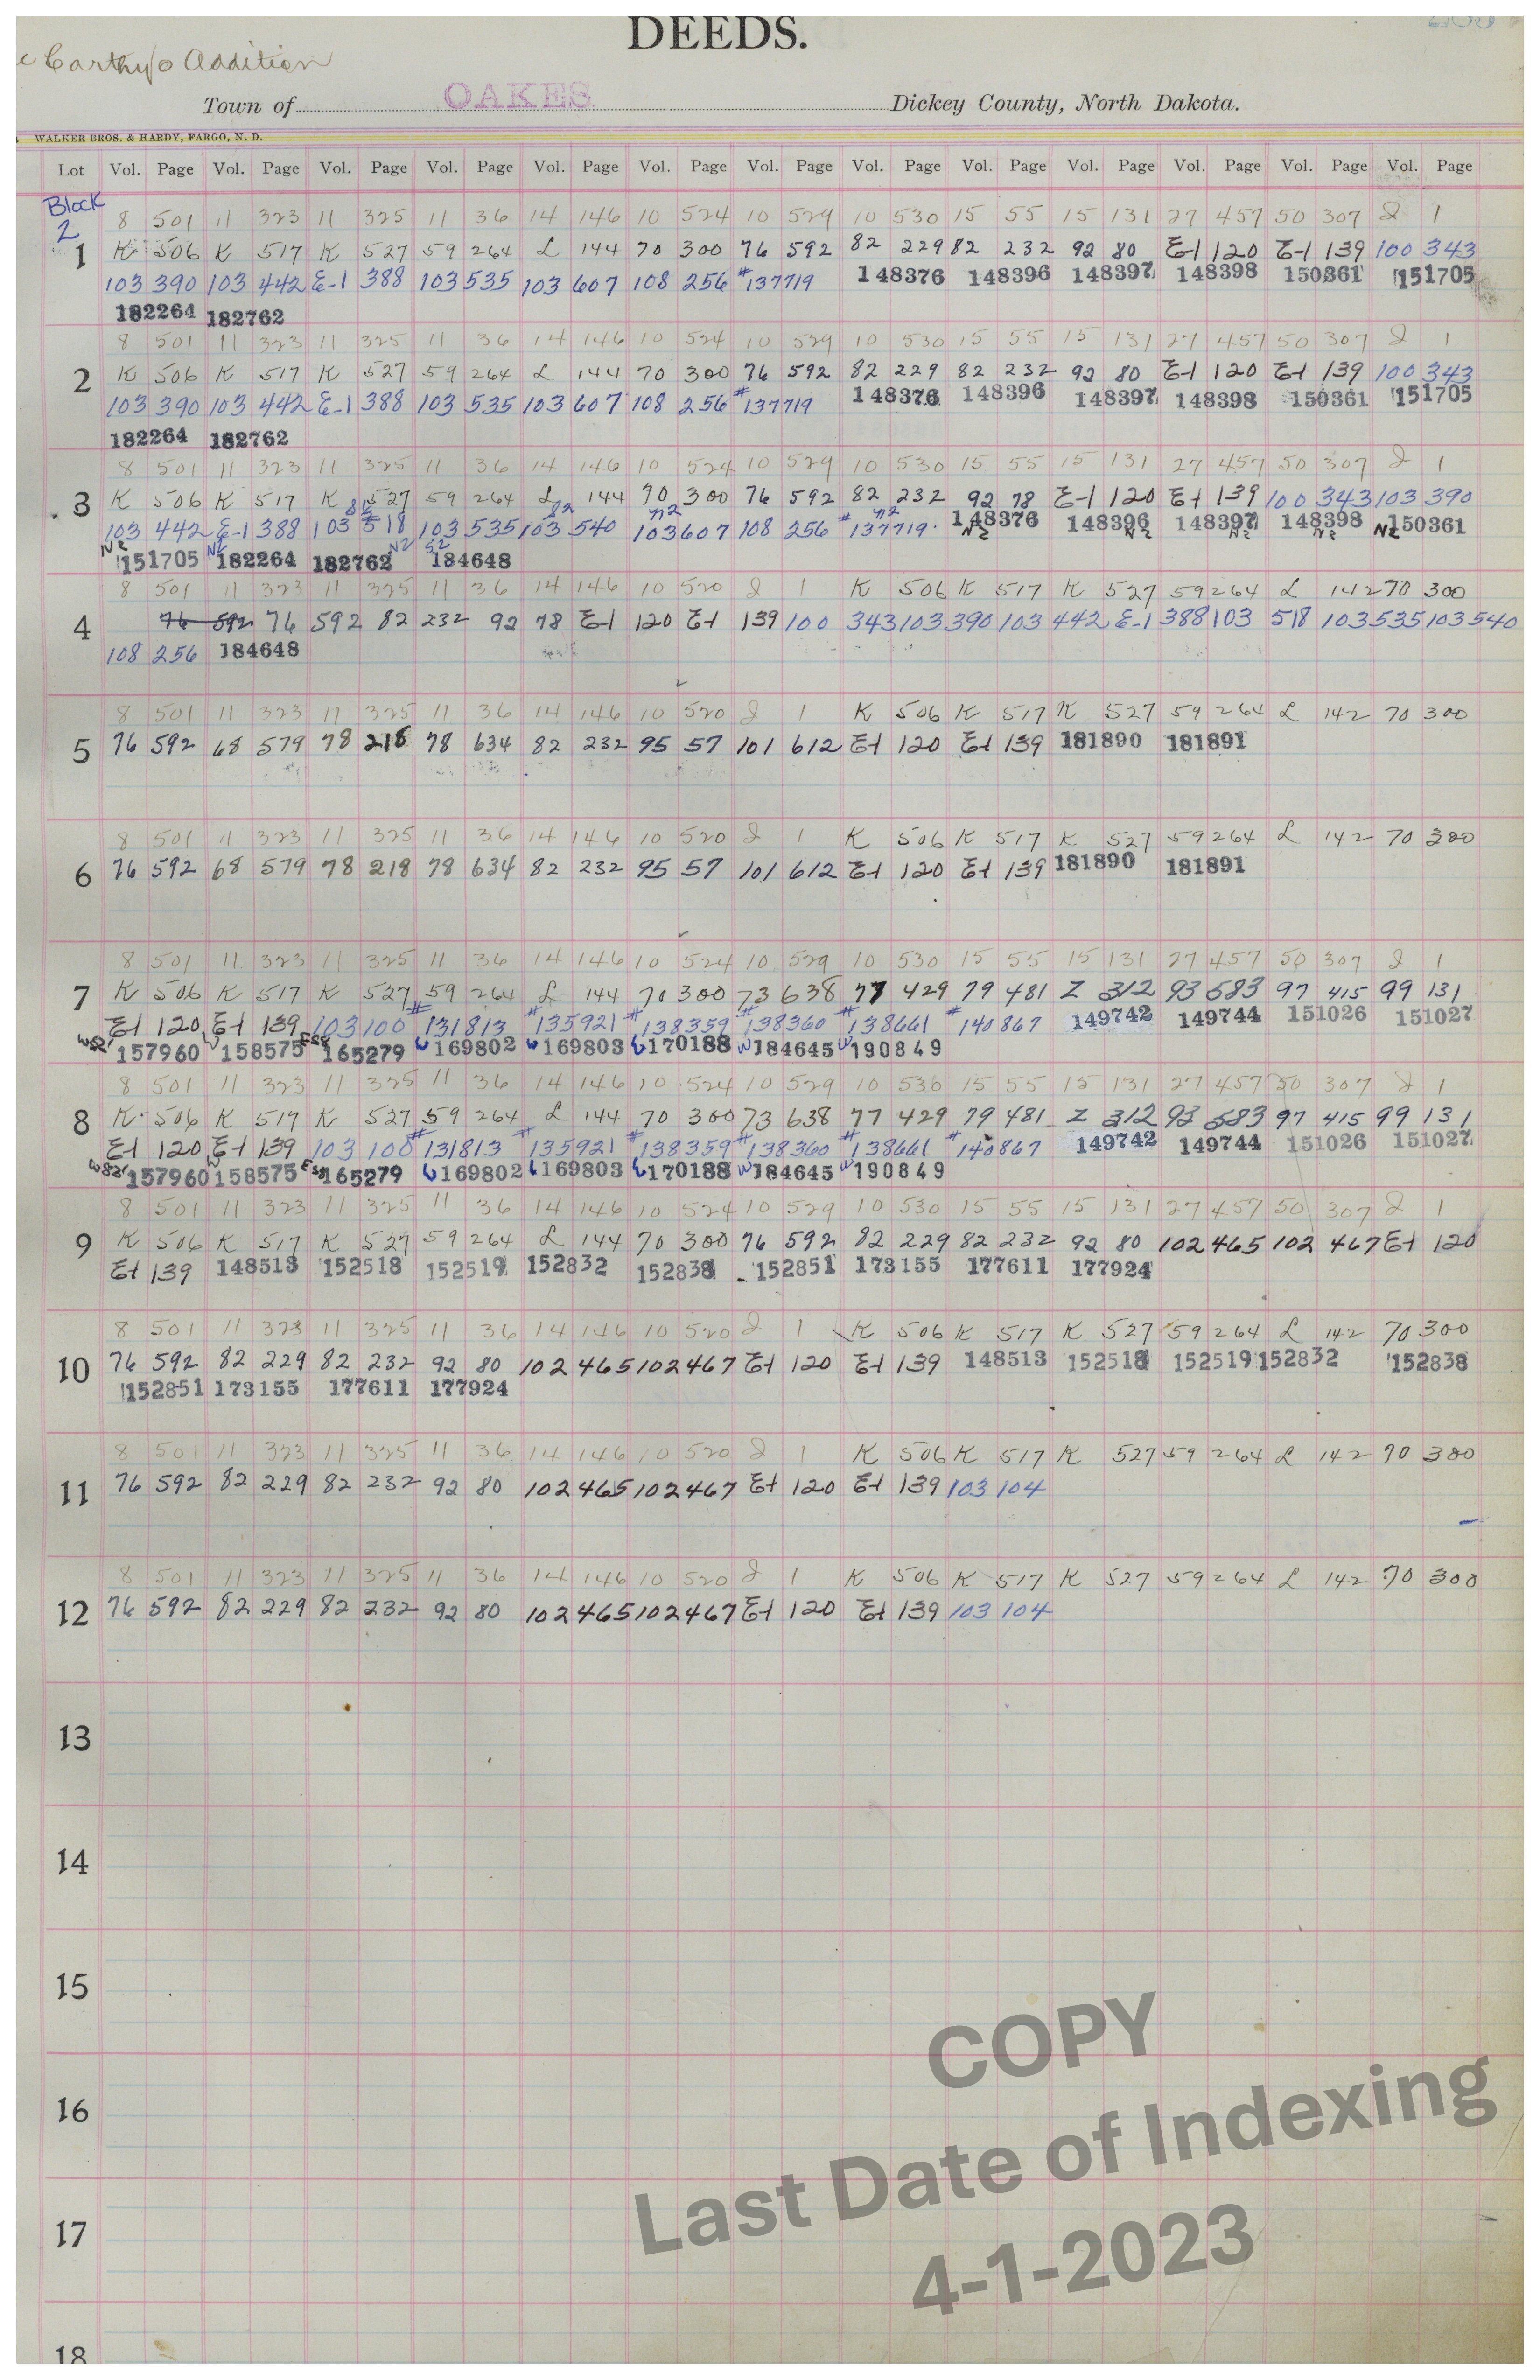 DEEDS.
Carthy's Addition
Town of OAKES Dickey County, North Dakota.
WALKER BROS. & HARDY, FARGO, N. D.
Lot Vol. Page Vol. Page Vol. Page Vol. Page Vol. Page Vol. Page Vol. Page Vol. Page Vol. Page Vol. Page Vol. Page Vol. Page Vol. Page
Block 2
8 501 11 323 11 325 11 36 14 146 10 524 10 529 10 530 15 55 15 131 27 457 50 307 J 1
1 K 506 K 517 K 527 59 264 L 144 70 300 76 592 82 229 82 232 92 80 E-1 120 E-1 139 100 343
103 390 103 442 E-1 388 103 535 103 607 108 256 #137719 148376 148396 148397 148398 150361 151705
182264 182762
8 501 11 323 11 325 11 36 14 146 10 524 10 529 10 530 15 55 15 131 27 457 50 307 J 1
2 K 506 K 517 K 527 59 264 L 144 70 300 76 592 82 229 82 232 92 80 E-1 120 E-1 139 100 343
103 390 103 442 E-1 388 103 535 103 607 108 256 #137719 148376 148396 148397 148398 150361 151705
182264 182762
8 501 11 323 11 325 11 36 14 146 10 524 10 529 10 530 15 55 15 131 27 457 50 307 J 1
3 K 506 K 517 K 527 59 264 L 144 70 300 76 592 82 232 92 78 E-1 120 E-1 139 100 343 103 390
103 442 E-1 388 103 518 103 535 S2 103 540 N2 103 607 108 256 N2 #137719 148376 N2 148396 N2 148397 N2 148398 N2 N2 150361
N2 151705 N2 182264 182762 N2 S2 184648
8 501 11 323 11 325 11 36 14 146 10 520 J 1 K 506 K 517 K 527 59 264 L 142 70 300
4 76 592 76 592 82 232 92 78 E-1 120 E-1 139 100 343 103 390 103 442 E-1 388 103 518 103 535 103 540
108 256 184648
8 501 11 323 11 325 11 36 14 146 10 520 J 1 K 506 K 517 K 527 59 264 L 142 70 300
5 76 592 68 579 78 218 78 634 82 232 95 57 101 612 E-1 120 E-1 139 181890 181891
8 501 11 323 11 325 11 36 14 146 10 520 J 1 K 506 K 517 K 527 59 264 L 142 70 300
6 76 592 68 579 78 218 78 634 82 232 95 57 101 612 E-1 120 E-1 139 181890 181891
8 501 11 323 11 325 11 36 14 146 10 524 10 529 10 530 15 55 15 131 27 457 50 307 J 1
7 K 506 K 517 K 527 59 264 L 144 70 300 73 638 77 429 79 481 Z 312 93 583 97 415 99 131
E-1 120 E-1 139 103 100 #131813 #135921 #138359 #138360 #138661 #140867 149742 149744 151026 151027
W82' 157960 W 158575 E58' 165279 W 169802 W 169803 W 170188 W 184645 W 190849
8 501 11 323 11 325 11 36 14 146 10 524 10 529 10 530 15 55 15 131 27 457 50 307 J 1
8 K 506 K 517 K 527 59 264 L 144 70 300 73 638 77 429 79 481 Z 312 93 583 97 415 99 131
E-1 120 E-1 139 103 100 #131813 #135921 #138359 #138360 #138661 #140867 149742 149744 151026 151027
W82' 157960 W 158575 E58' 165279 W 169802 W 169803 W 170188 W 184645 W 190849
8 501 11 323 11 325 11 36 14 146 10 524 10 529 10 530 15 55 15 131 27 457 50 307 J 1
9 K 506 K 517 K 527 59 264 L 144 70 300 76 592 82 229 82 232 92 80 102 465 102 467 E-1 120
E-1 139 148513 152518 152519 152832 152838 152851 173155 177611 177924
8 501 11 323 11 325 11 36 14 146 10 520 J 1 K 506 K 517 K 527 59 264 L 142 70 300
10 76 592 82 229 82 232 92 80 102 465 102 467 E-1 120 E-1 139 148513 152518 152519 152832 152838
152851 173155 177611 177924
8 501 11 323 11 325 11 36 14 146 10 520 J 1 K 506 K 517 K 527 59 264 L 142 70 300
11 76 592 82 229 82 232 92 80 102 465 102 467 E-1 120 E-1 139 103 104
8 501 11 323 11 325 11 36 14 146 10 520 J 1 K 506 K 517 K 527 59 264 L 142 70 300
12 76 592 82 229 82 232 92 80 102 465 102 467 E-1 120 E-1 139 103 104
13
14
15
16
17
18
COPY
Last Date of Indexing
4-1-2023